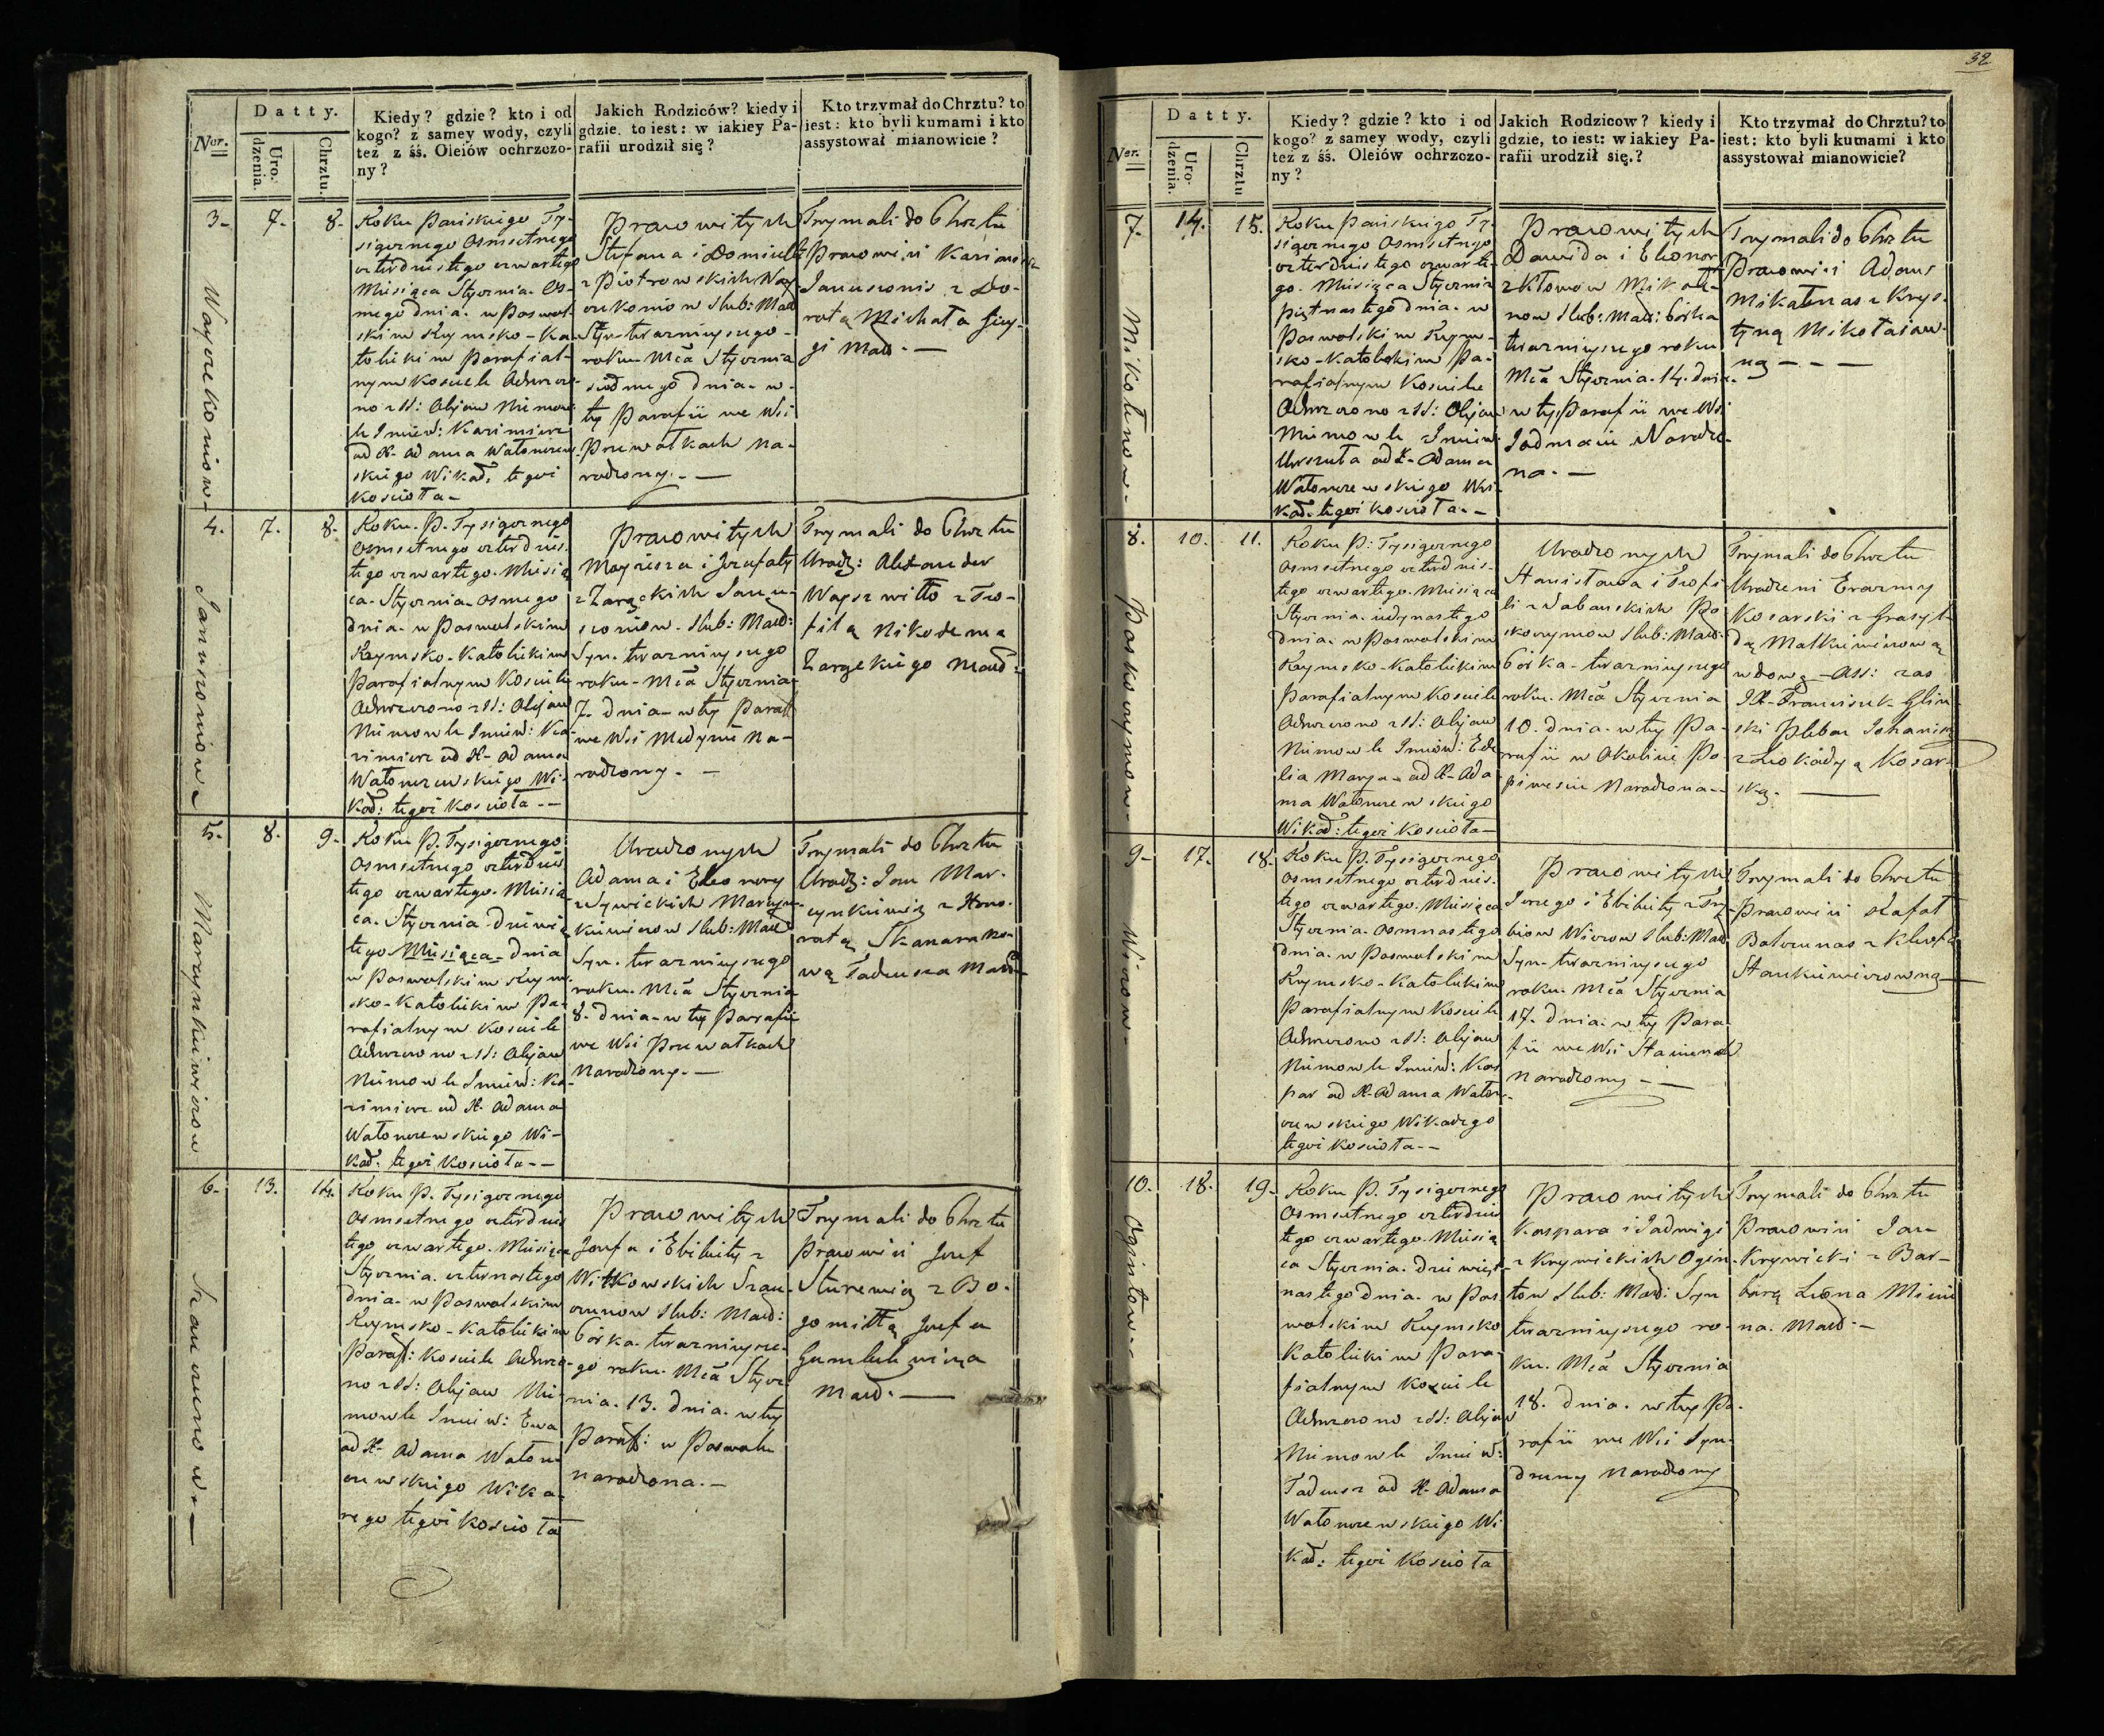 Datty.
Ner.
Uro-
dzenia.
Chrztu.
Kiedy? gdzie? kto i od
kogo? z samey wody, czyli
też z śś. Oleiów ochrzczo-
ny?
Jakich Rodziców? kiedy i
gdzie, to iest: w iakiey Pa-
rafii urodził się?
Kto trzymał do Chrztu? to
iest: kto byli kumami i kto
assystował mianowicie?
3-
7.
8.
Roku Pańskiego Ty-
siącznego Osmsetnego
czterdziestego czwartego
Miesiąca Stycznia Os-
mego dnia w Poswol-
skim Rzymsko-Ka-
tolickim Parafial-
nym Kosciele Ochrzczo-
no z SS: Olejów Niemow-
le Imien: Kazimierz
od X. Adama Wałonczew-
skiego Wikar: tegoż
Kościoła-
Prawowitych
Stefana i Domicelli
z Piotrowskich Way-
czekoniow Slub: Małż
Syn terazniejszego
roku Mca Stycznia
siodmego dnia w
tey Parafii we Wsi
Puwałkach na-
rodzony.-
Trzymali do Chrztu
Prawowici Kazimierz
Januszonis z Do-
rotą Michała
Małż.-
4.
7.
8.
Roku P. Tysiącznego
Osmsetnego czterdzies-
tego czwartego Miesią-
ca Stycznia Osmego
dnia w Poswolskim
Rzymsko-Katolickim
Parafialnym Kosciele
Ochrzczono z SS: Olejów
Niemowle Imien: Ka-
zimierz od X. Adama
Wałonczewskiego Wi-
kar: tegoż Kościoła--
Prawowitych
Mayiesza i Jozefaty
z Zarzeckich Janu-
szoniow Slub: Małż:
Syn terazniejszego
roku Mca Stycznia
7. dnia w tey Paraf
we Wsi Medynie Na-
rodzony.-
Trzymali do Chrztu
Urodz: Alexander
Wayszwiłło z Teo-
filą Nikodema
Zarzeckiego Małż:
5.
8.
9.
Roku P. Tysiącznego
Osmsetnego czterdzies-
tego czwartego Miesią-
ca Stycznia Dziewią-
tego Miesiąca dnia
w Poswolskim Rzym-
sko-Katolickim Pa-
rafialnym Kosciele
Ochrzczono z SS: Olejów
Niemowle Imien: Ka-
zimierz od X. Adama
Wałonczewskiego Wi-
kar. tegoż Kościoła--
Urodzonych
Adama i Eleonory
z Marcyn-
kiewiczow Slub: Małż
Syn terazniejszego
roku Mca Stycznia
8. dnia w tey Parafii
we Wsi Puwałkach
Narodzony.-
Trzymali do Chrztu
Urodz: Jan Mar-
cynkiewicz z Hono-
ratą
Tadeusza Małż-
6.
13.
14.
Roku P. Tysiącznego
Osmsetnego czterdzies
tego czwartego Miesiąca
Stycznia czternastego
dnia w Poswolskim
Rzymsko-Katolickim
Paraf: Kosciele Ochrzczo-
no z SS: Olejów Nie-
mowle Imien: Ewa
od X. Adama Wałon-
czewskiego Wika-
rego tegoż Kościoła
Prawowitych
Jozefa i Elżbiety z
Witkowskich Szau-
Slub: Małż:
Córka terazniejsze-
go roku Mca Stycz-
nia 13. dnia w tey
Paraf: w Poswolu
narodzona.-
Trzymali do Chrztu
Prawowici Jozef
z Bo-
gomiłłą Jozefa
Małż.-
Wayczekoniow-
Januszoniow-
Marcynkiewiczow
32
Datty.
Ner.
Uro-
dzenia.
Chrztu
Kiedy? gdzie? kto i od
kogo? z samey wody, czyli
też z śś. Oleiów ochrzczo-
ny?
Jakich Rodzicow? kiedy i
gdzie, to iest: w iakiey Pa-
rafii urodził się.?
Kto trzymał do Chrztu? to
iest: kto byli kumami i kto
assystował mianowicie?
7.
14.
15.
Roku Pańskiego Ty-
siącznego Osmsetnego
czterdziestego czwarte-
go Miesiąca Stycznia
piętnastego dnia w
Poswolskim Rzym-
sko-Katolickim Pa-
rafialnym Kosciele
Ochrzczono z SS: Olejow
Niemowle Imien
Urszula od X. Adama
Wałonczewskiego Wi-
kar. tegoż Kościoła.-
Prawowitych
Dawida i Eleonory
z Kłomow Mikołe-
now Slub: Małż: Córka
terazniejszego roku
Mca Stycznia 14. dnia
w tey Parafii we Wsi
Narodzo-
na.-
Trzymali do Chrztu
Prawowici Adam
Mikołunas z Krys-
tyną Mikołaiow-
ną - - -
8.
10.
11.
Roku P: Tysiącznego
Osmsetnego czterdzies-
tego czwartego Miesiąca
Stycznia iedynastego
dnia w Poswolskim
Rzymsko-Katolickim
Parafialnym Kosciele
Ochrzczono z SS: Olejow
Niemowle Imien:
Marya od X. Ada-
ma Wałonczewskiego
Wikar: tegoż Kościoła-
Urodzonych
Stanisława i Teofi-
li z Po-
Slub: Małż-
Córka terazniejszego
roku Mca Stycznia
10. dnia w tey Pa-
rafii w Okolicy Po-
piwesiu Narodzona--
Trzymali do Chrztu
Urodzeni Erazmy
Kosarski z
Małkiewiczową
wdową - Ass: zas
JX. Franciszek Glin-
ski Pleban
z Leokadyą Kosar-
ską.
9-
17.
18.
Roku P. Tysiącznego
Osmsetnego czterdzies-
tego czwartego Miesiąca
Stycznia Osmnastego
dnia w Poswolskim
Rzymsko-Katolickim
Parafialnym Kosciele
Ochrzczono z SS: Olejow
Niemowle Imien: Kas-
par od X. Adama Wałon-
czewskiego Wikarego
tegoż Kościoła--
Prawowitych
Jerzego i Elżbiety z
Slub: Małż
Syn terazniejszego
roku Mca Stycznia
17. dnia w tey Para-
fii we Wsi
Narodzony--
Trzymali do Chrztu
Prawowici Rafał
Stankiewiczowną
10.
18.
19-
Roku P. Tysiącznego
Osmsetnego czterdzies
tego czwartego Miesią
ca Stycznia Dziewięt-
nastego dnia w Pos-
wolskim Rzymsko
Katolickim Para-
fialnym Kosciele
Ochrzczono z SS: Olejow
Niemowle Imien:
Tadeusz od X. Adama
Wałonczewskiego Wi
kar: tegoż Kościoła
Prawowitych
Kaspara i Jadwigi
z Krywickich Ogin-
tow Slub: Małż: Syn
terazniejszego ro-
ku Mca Stycznia
18. dnia w tey Pa-
rafii we Wsi Gyn-
druny Narodzony
Trzymali do Chrztu
Prawowici Jan
Krywicki z Bar-
barą Leona
Małż.-
Mikołenow-
Ogintow-